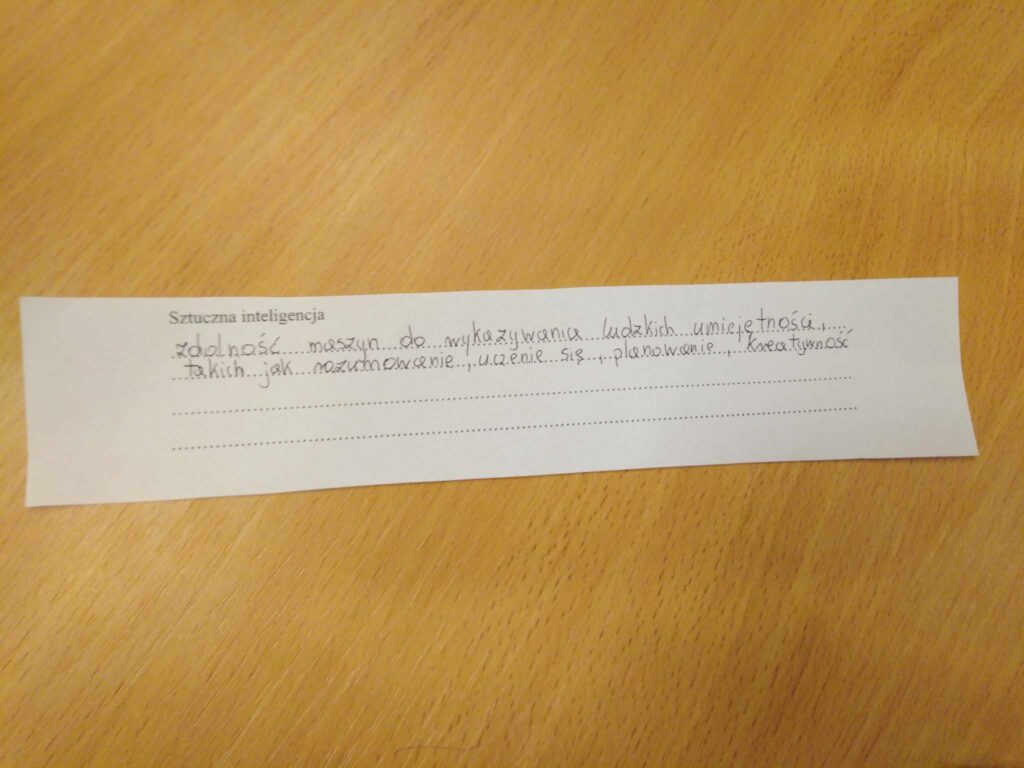 Sztuczna inteligencja
zdolność maszyn do wykazywania ludzkich umiejętności,
takich jak rozumowanie, uczenie się, planowanie, kreatywność